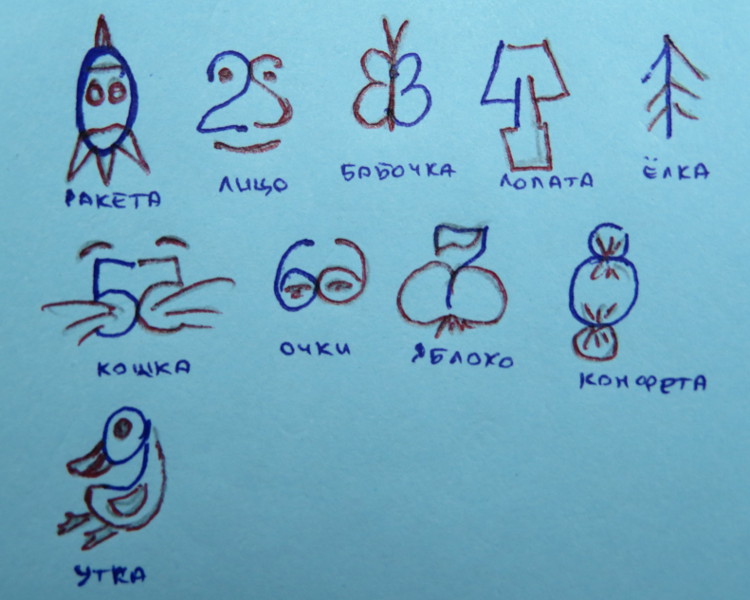 РАКЕТА ЛИЦО БАБОЧКА ЛОПАТА ЁЛКА
КОШКА ОЧКИ ЯБЛОКО КОНФЕТА
УТКА